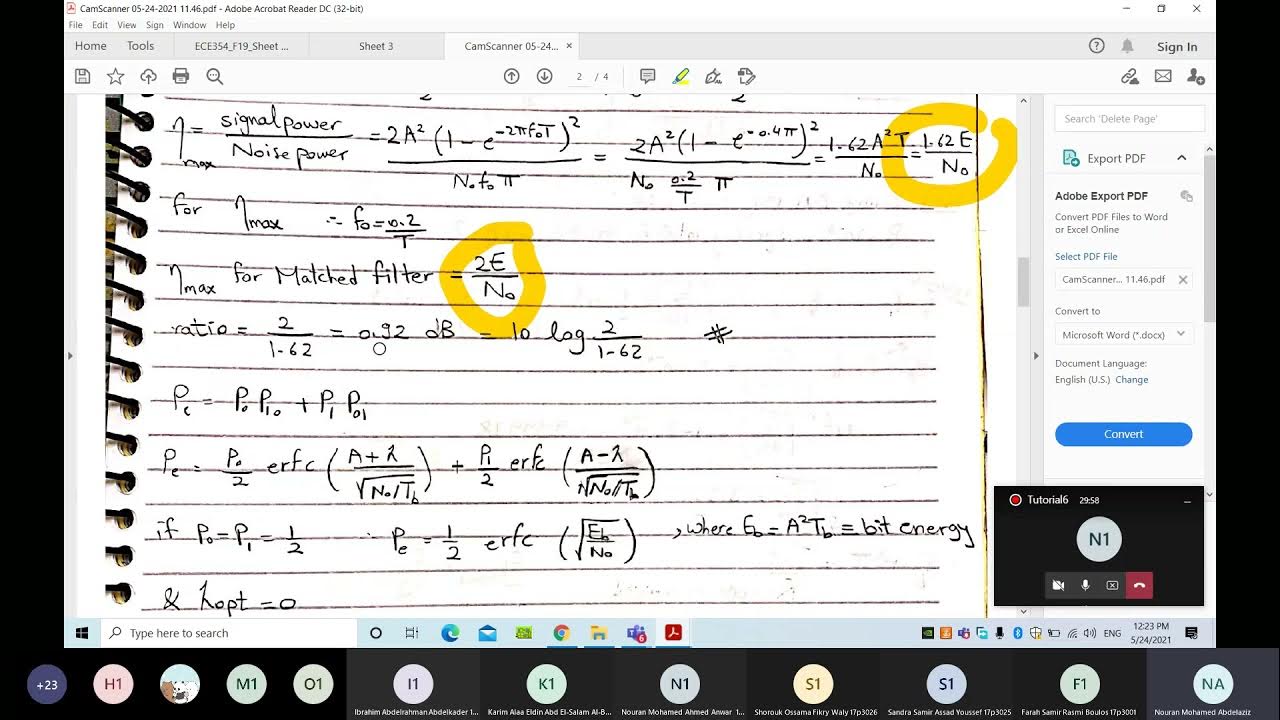 CamScanner 05-24-2021 11.46.pdf - Adobe Acrobat Reader DC (32-bit)
File Edit View Sign Window Help
Home Tools ECE354_F19_Sheet ... Sheet 3 CamScanner 05-24... × Sign In
2 / 4
2 2
η max = signal power / Noise power = 2A² (1 - e^-2πf₀T)² / N₀ f₀ π = 2A² (1 - e^-0.4π)² / N₀ 0.2/T π = 1.62 A² T / N₀ = 1.62 E / N₀
for η max ∴ f₀ = 0.2/T
η max for Matched filter = 2E / N₀
ratio = 2 / 1.62 = 0.92 dB = 10 log 2 / 1.62 #
Pe = P₀ P₁₀ + P₁ P₀₁
Pe = P₀/2 erfc ( A+λ / √N₀/Tb ) + P₁/2 erfc ( A-λ / √N₀/Tb )
if P₀ = P₁ = 1/2 ∴ Pe = 1/2 erfc ( √Eb/N₀ ) , where Eb = A² Tb ≡ bit energy
& λopt = 0
Search 'Delete Page'
Export PDF
Adobe Export PDF
Convert PDF Files to Word
or Excel Online
Select PDF File
CamScanne... 11.46.pdf ×
Convert to
Microsoft Word (*.docx)
Document Language:
English (U.S.) Change
Convert
Tutorial6 29:58
N1
Type here to search
ENG
12:23 PM
5/24/2021
+23 H1 M1 O1 I1 K1 N1 S1 S1 F1 NA
Ibrahim Abdelrahman Abdelkader 1... Karim Alaa Eldin Abd El-Salam Al-B... Nouran Mohamed Ahmed Anwar 1... Shorouk Ossama Fikry Waly 17p3026 Sandra Samir Assad Youssef 17p3025 Farah Samir Rasmi Boulos 17p3... Nouran Mohamed Abdelaziz